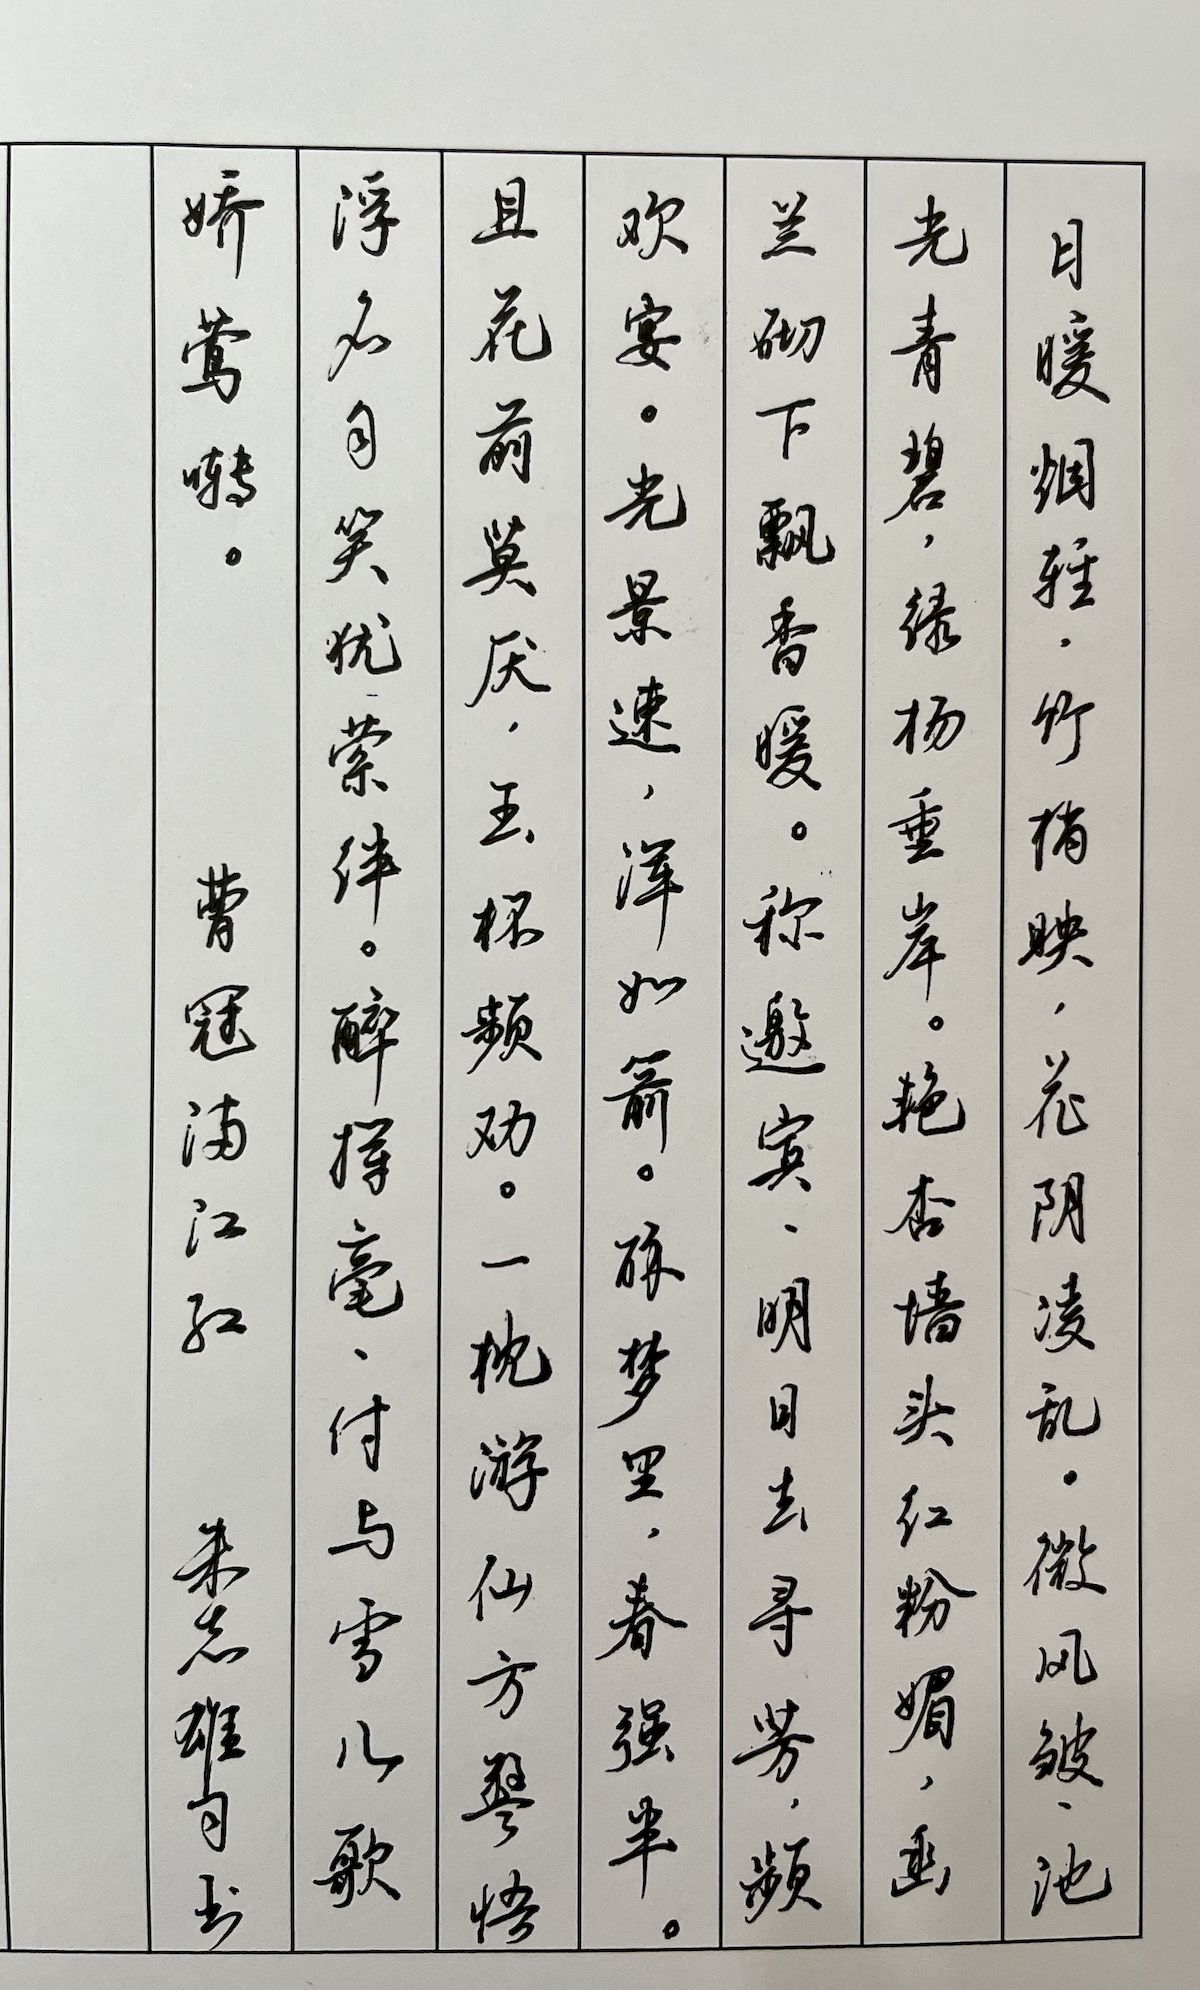 日暖烟轻，竹梢映，花阴凌乱。微风皱、池
光青碧，绿杨垂岸。艳杏墙头红粉媚，幽
兰砌下飘香暖。称邀宾、明日去寻芳，频
欢宴。光景速，浑如箭。酥梦里，春强半。
且花前莫厌，玉杯频劝。一枕游仙方警悟
浮名自笑犹萦绊。醉挥毫、付与雪儿歌
娇莺啭。 曹冠满江红 朱志雄句书